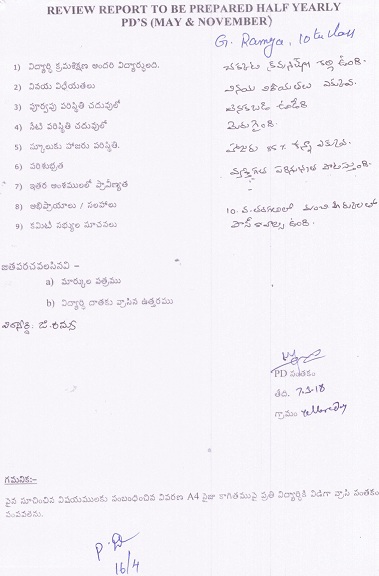 REVIEW REPORT TO BE PREPARED HALF YEARLY
PD'S (MAY & NOVEMBER)
G. Ramya, 10th class
1) విద్యార్థి క్రమశిక్షణ అందరి విద్యార్థులది. చక్కటి క్రమశిక్షణ కల్గి ఉంది.
2) వినయ విధేయతలు వినయ విధేయతలు ఎక్కువ.
3) పూర్వపు పరిస్థితి చదువులో వెనకబడి ఉండేది
4) నేటి పరిస్థితి చదువులో మెరుగైంది.
5) స్కూలుకు హాజరు పరిస్థితి. హాజరు శాతం ఎక్కువ.
6) పరిశుభ్రత వ్యక్తిగత పరిశుభ్రత పాటిస్తుంది.
7) ఇతర అంశములలో ప్రావీణ్యత -
8) అభిప్రాయాలు / సలహాలు 10 వ తరగతిలో మంచి మార్కులతో
9) కమిటి సభ్యుల సూచనలు పాస్ కావాల్సి ఉంది.
జతపరచవలసినవి –
a) మార్కుల పత్రము
b) విద్యార్థి దాతకు వ్రాసిన ఉత్తరము
జి. రమ్య
PD సంతకం
తేది. 7-3-18
గ్రామం yellareddy
గమనిక:-
పైన సూచించిన విషయములకు సంబంధించిన వివరణ A4 సైజు కాగితముపై ప్రతి విద్యార్థికి విడిగా వ్రాసి సంతకం
పంపవలెను.
16/4